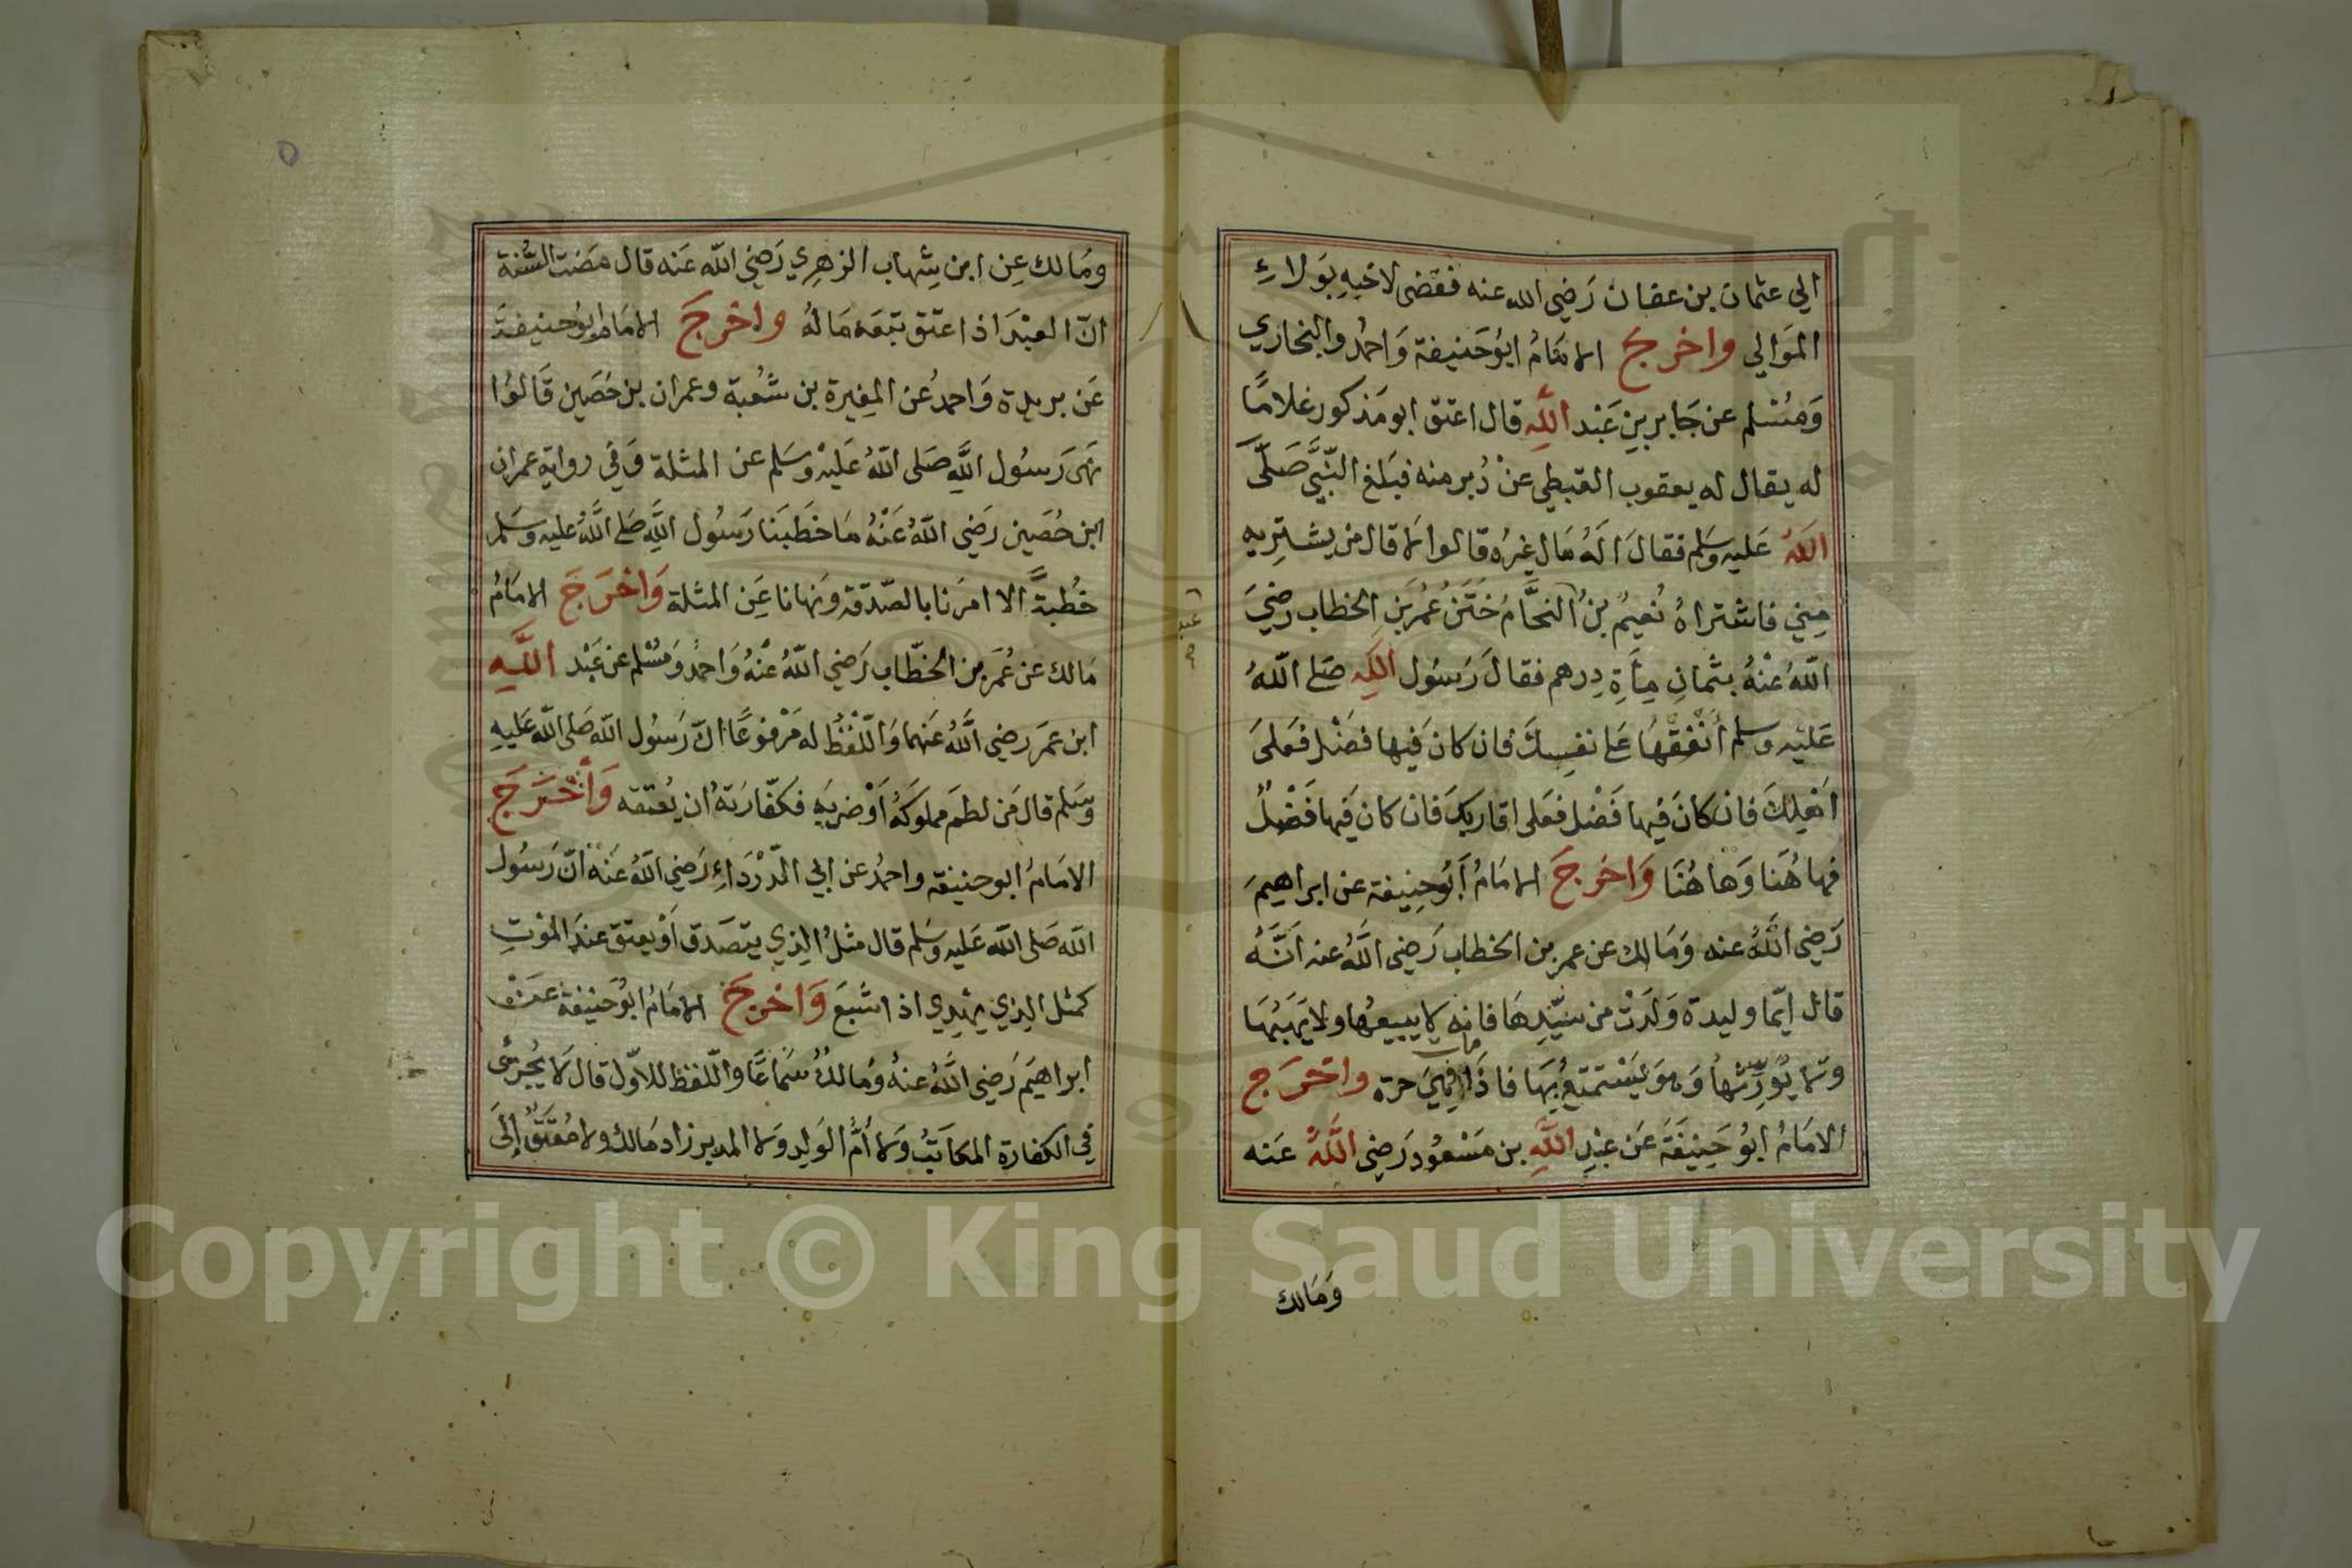 الي عثمان بن عفان رَضي الله عنه فقضى لاخيهِ بوَلاءِ
الموَالي واخرجَ الامَامُ ابوُحَنيفة وَاحمدُ والبخاري
وَمُسْلم عن جَابر بن عَبْد اللهِ قال اعتق ابو مَذكور غلامًا
له يقال له يعقوب القبطي عنْ دُبر منه فبَلغ النّبيَّ صَلىَّ
اللهُ عَليه وسَلم فقالَ اَلهُ مَال غيرُه قالوا لا قال من يشتريه
مني فاشتراهُ نُعيمُ بنُ النحَّام خَتَنُ عُمَر بن الخطاب رَضيَ
اللهُ عَنْهُ بثمانِ مِأَةِ دِرهم فقالَ رَسُول اللهِ صَلى اللهُ
عَليْه وسلم أنْفِقْهَا عَلى نفسِكَ فان كانَ فيها فضْل فعَلىَ
اَهْلِكَ فان كانَ فيها فَضْل فعَلى اقاربكَ فان كان فيها فَضْلٌ
فهاهُنا وَهاهُنَا وَاخرَجَ الامَامُ أَبُوحِنيفة عن ابراهيمَ
رَضي اللهُ عنه وَمَالك عن عمر بن الخطاب رَضي اللهُ عنه اَنَّهُ
قال اَيّما وليدة وَلَدَتْ من سَيّدِهَا فانه لا يبيعُها ولا يَهَبُهَا
ولا يُوَرِّثُها وَهوَ يَسْتمتعُ بهَا فاذَا مات فهيَ حرة واخرَج
الامَامُ ابوُ حَنِيفَةَ عَن عبْدِ اللهِ بن مَسْعُود رَضي اللهُ عَنه
وَمَالك
عبد
صح
ومَالك عن ابن شِهاب الزهري رَضيَ الله عَنه قال مضَت السُّنة
انّ العبْدَ اذا اعتق تبعَه مَالهُ واخرجَ الامَام ابوُحَنيفةَ
عَن بريدة وَاحمدُ عَن المغيرة بن شُعبة وعمران بن حُصَين قَالوُا
نهىَ رَسُول اللهِ صَلى اللهُ عَليْهِ وسَلم عن المثلة وَفي رواية عمران
ابن حُصَين رَضي اللهُ عَنْهُ مَا خَطبَنا رَسُول اللهِ صَلى اللهُ عليه وسَلم
خُطبةً الا امرَنا بالصّدَقة ونهانا عَن المثلة وَاخْرَجَ الامَامُ
مَالك عن عُمَر بن الخطّاب رَضي اللهُ عنْهُ وَاحمدُ وَمُسْلم عن عَبْد اللهِ
ابن عمَر رضي اللهُ عَنهما وَاللفْظُ له مَرْفوعًا انّ رَسُول الله صَلى الله عَليهِ
وسَلم قال مَن لطمَ مملوكَهُ اَوْ ضربَه فكفّارَتهُ ان يُعتقه وَأخْرَجَ
الامَامُ ابو حنيفة واحمدُ عن ابي الدّرْدَاءِ رَضي اللهُ عَنهُ انّ رَسوُل
الله صَلى الله عَليه وسَلم قال مثلُ الذِي يتصَدق اَوْ يعتق عندَ الموْتِ
كمثل الذي يُهدِي اذا شبَعَ وَاخرجَ الامَامُ ابوُحَنيفةَ عَنْ
ابراهيَم رَضي اللهُ عنهُ ومَالكُ سَماعًا واللفظ للاوّل قال لَا يُجزئُ
في الكفارة المكاتَبُ وَلا أمُّ الوَلد وَلا المدبر زاد مَالك ولا مُعْتَقٌ إلَى